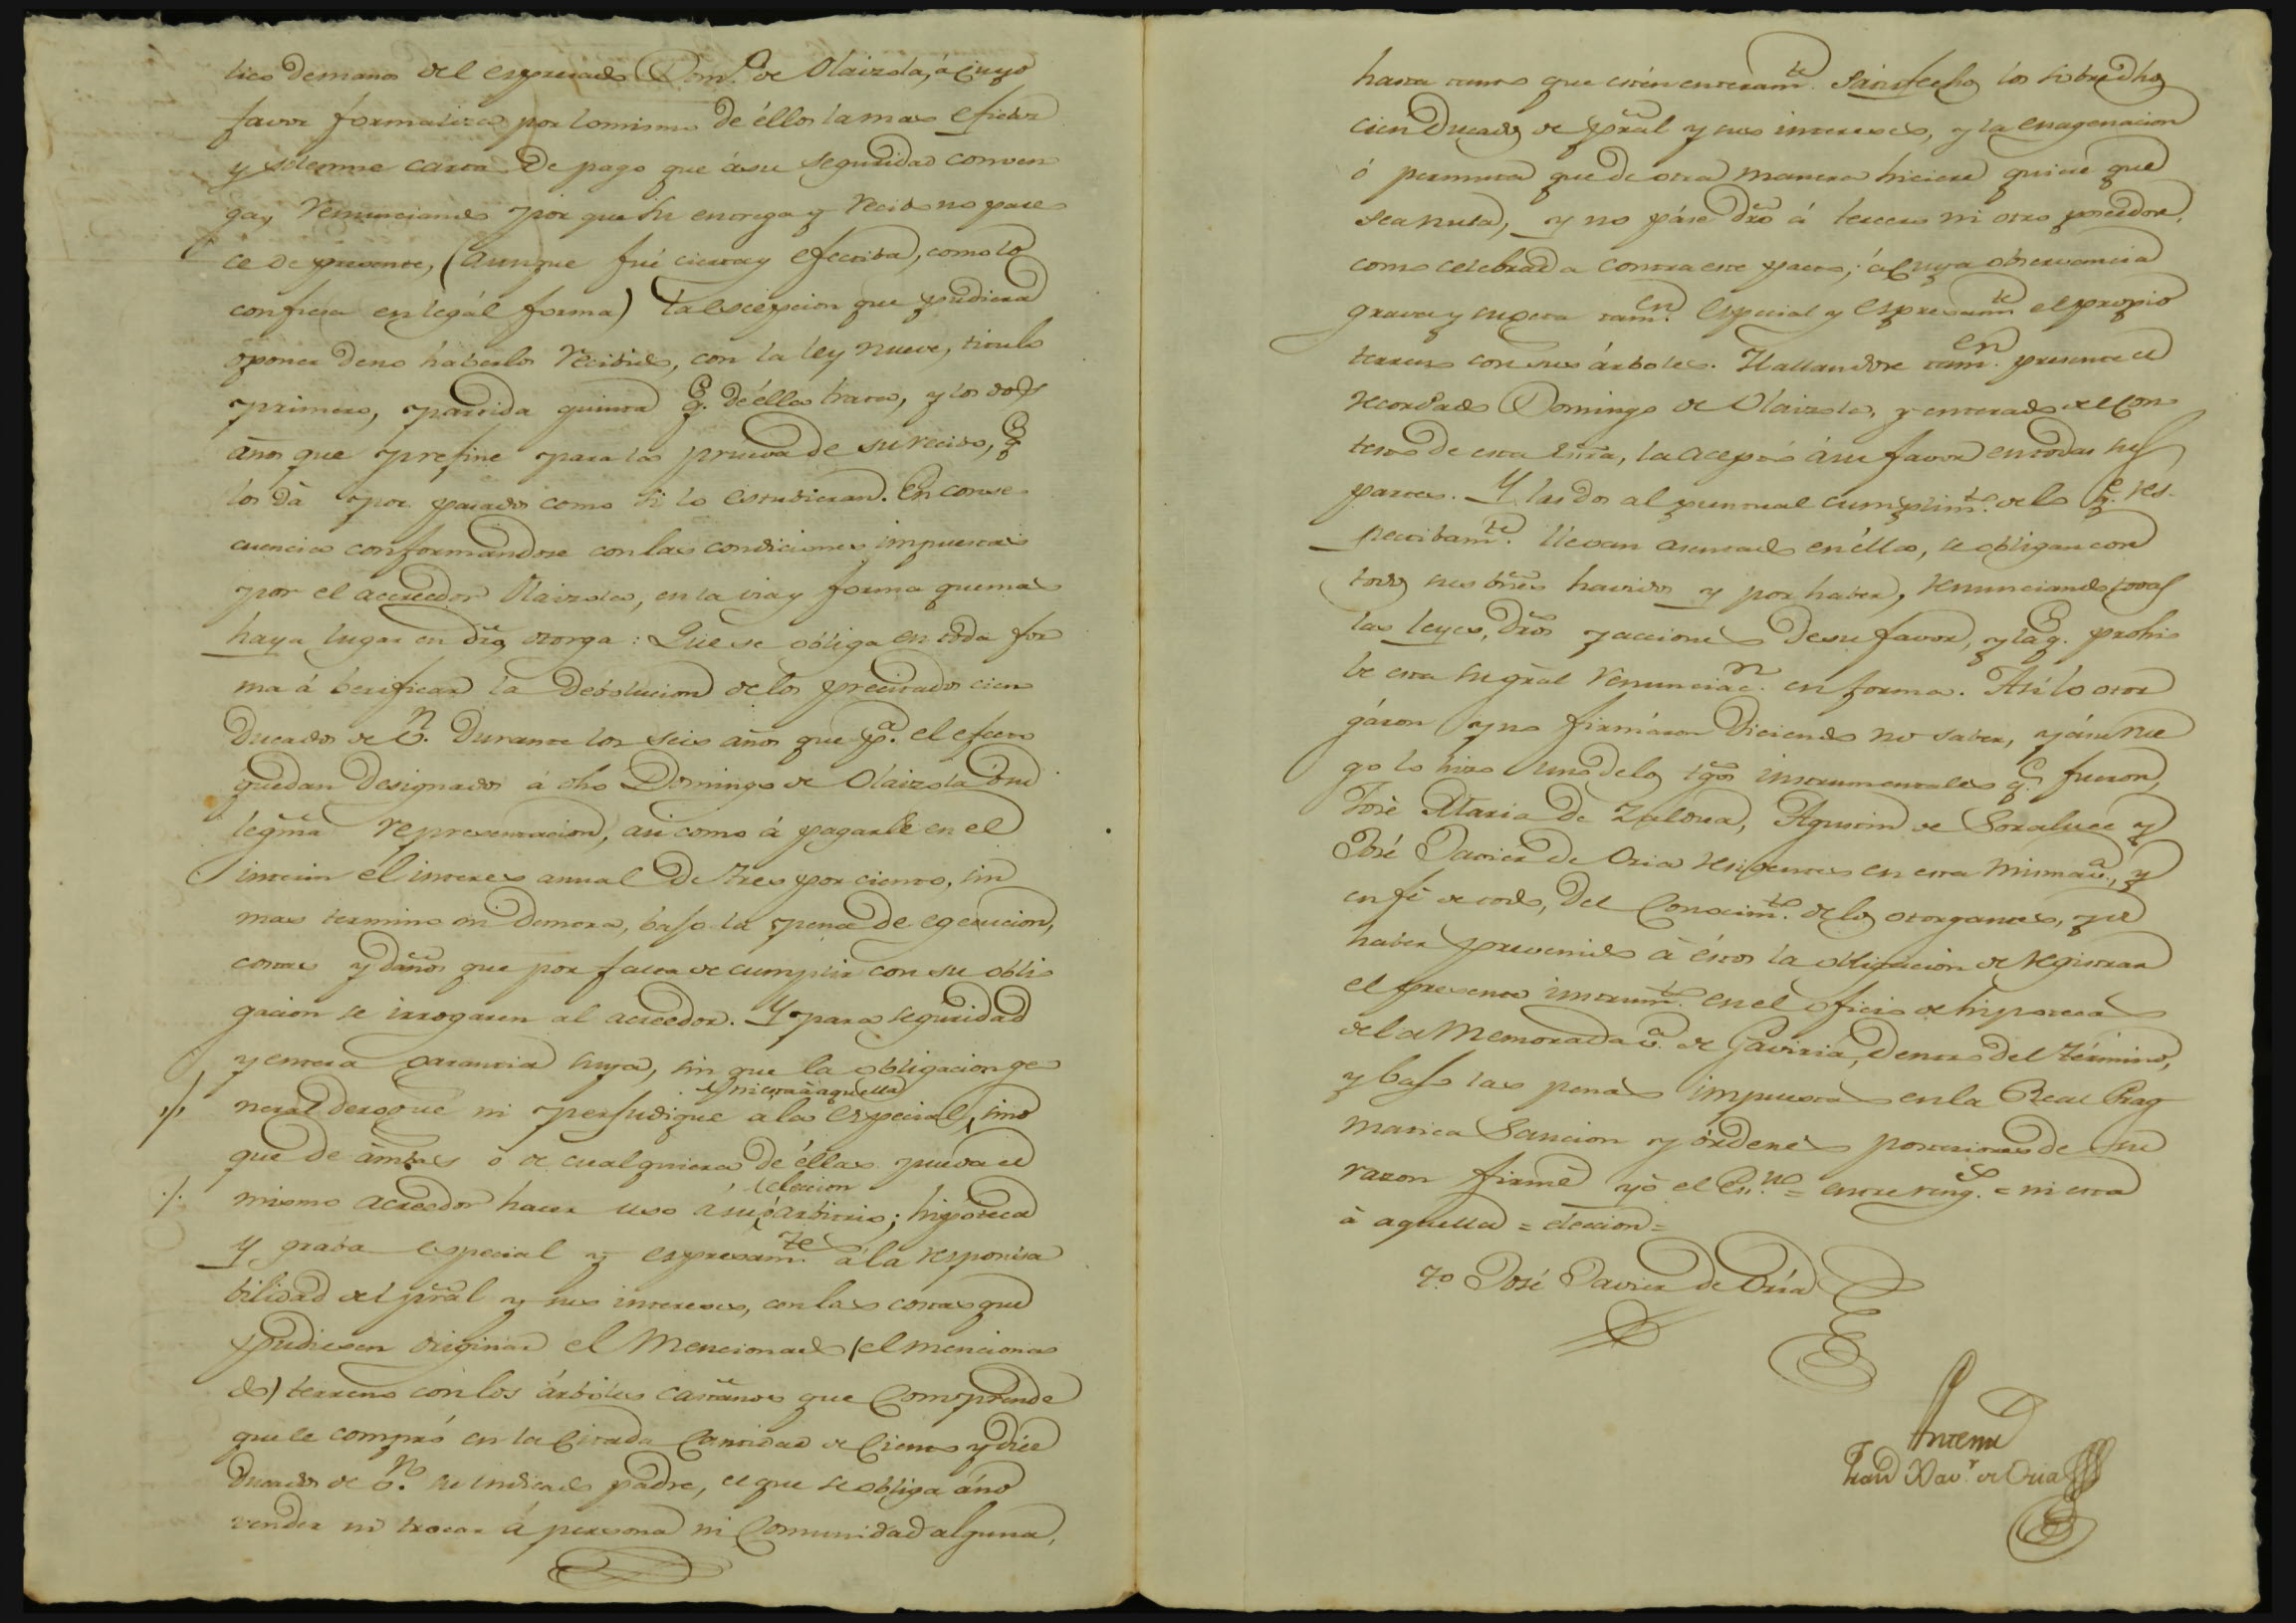 tico demano del espresado Dom.º de Olaizola, á cuyo
favor formaliza por lo mismo de éllos la mas eficaz
y solemne carta de pago que á su seguridad conven
ga, renunciando por que su entrega y recibo no pare
ce de presente, (aunque fué cierta y efectiba, como lo
confiesa en legál forma) la escepcion que pudiera
oponer de no haberlos recibido, con la ley nueve, titulo
primero, partida quinta q.e de élla trata, y los dos
años que prefine para la prueva de su recivo, q.e
los dà por pasados como si lo estubieran. En conse
cuencia conformandose con las condiciones impuestas
por el acreedor Olaizola, en la via y forma que mas
haya lugar en dro, otorga: Que se obliga en toda for
ma á berificar la debolucion de los precitados cien
Ducados de v.n durante los seis años que p.a el efecto
quedan designados á dho Domingo de Olaizola ó su
legma representacion, asi como á pagarle en el
interin el interes anual de tres por ciento, sin
mas termino ni demora, bajo la pena de egecucion,
costas y daños que por falta de cumplir con su obli
gacion se irrogaren al acreedor. Y para seguridad
y entera garantia suya, sin que la obligacion ge
ni esta à aquella
neral derogue ni perjudique a la especial, sino
que de ámbas ò de cualquiera de éllas pueda el
eleccion
mismo acreedor hacer uso á su arbitrio; hipoteca
y graba especial y espresam.te á la responsa
bilidad del pral y sus intereses, con las costas que
pudiesen originar el mencionado (el menciona
do) terreno con los árboles castaños que comprende
que le compró en la citada cantidad de ciento y diez
Ducados de v.n su indicado padre, el que se obliga áno
vender ni trocar á persona ni Comunidad alguna,
hasta tanto que estén enteram.te satisfechos los sobredhos
cien Ducados de pral y sus intereses, y la enagenacion
ó permuta que de otra manera hiciere quiere que
sea nula, y no páse dro á tercero ni otro poseedor,
como celebrada contra este pacto; á cuya observancia
grava y sugeta tam.en especial y espresam.te el propio
terreno con sus árboles. Hallandose tam.en presente el
recordado Domingo de Olaizola, y enterado del con
testo de esta Esra, la aceptó á su favor en todas sus
partes. Y las dos al puntual cumplim.to de lo q.e res-
pectibam.te llevan asentado en élla, se obligan con
todos sus bnes havidos y por haber, renunciando todas
las leyes, dros y acciones de su favor, y la q.e prohi
be esta su gral renunciac.n en forma. Asi lo otor
gáron y no firmáron diciendo no saber, y á su rue
go lo hizo uno de los tgos instrumentales q.e fueron,
José Maria de Zaldua, Agustin de Soraluce y
José Javier de Oria residentes en esta misma v.a, y
en fé de todo, del conocim.to de los otorgantes, y de
haber prevenido á éstos la obligacion de registrar
el presente instrum.to en el oficio de hipotecas
de la memorada v.a de Gaviria, dentro del término,
y bajo las penas impuestas en la Real Prag
matica Sancion y órdenes posteriores de su
razon firmé yó el Es.no = entre reng.s = ni esta
à aquella = eleccion =
T.o José Javier de Oria
Antemi
Fran.co Xav.r de Oria